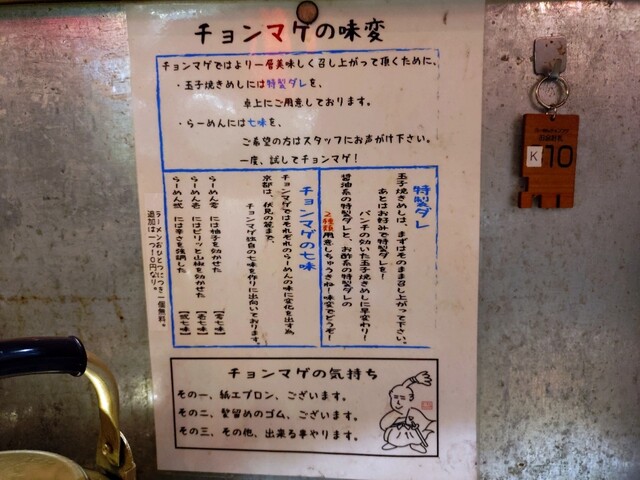 チョンマゲの味変
チョンマゲではより一層美味しく召し上がって頂くために、
・玉子焼きめしには特製ダレを、
卓上にご用意しております。
・らーめんには七味を、
ご希望の方はスタッフにお声がけ下さい。
一度、試してチョンマゲ！
特製ダレ
玉子焼きめしは、まずはそのまま召し上がって下さい。
あとはお好みで特製ダレを！
パンチの効いた玉子焼きめしに早変わり！
醤油系の特製ダレと、お酢系の特製ダレの
2種類用意しちゃうさかい！味変でどうぞ！
チョンマゲの七味
チョンマゲではそれぞれのらーめんの味に変化を出す為
京都は、伏見の麓まで、
チョンマゲ独自の七味を作りに出向いております。
らーめん零 には柚子を効かせた 【零七味】
らーめん壱 にはピリッと山椒を効かせた 【壱七味】
らーめん弐 には辛さを強調した 【弐七味】
ラーメンおひとつにつき一個無料。
追加は一つ10円なり。
チョンマゲの気持ち
その一、紙エプロン、ございます。
その二、髪留めのゴム、ございます。
その三、その他、出来る事やります。
K10